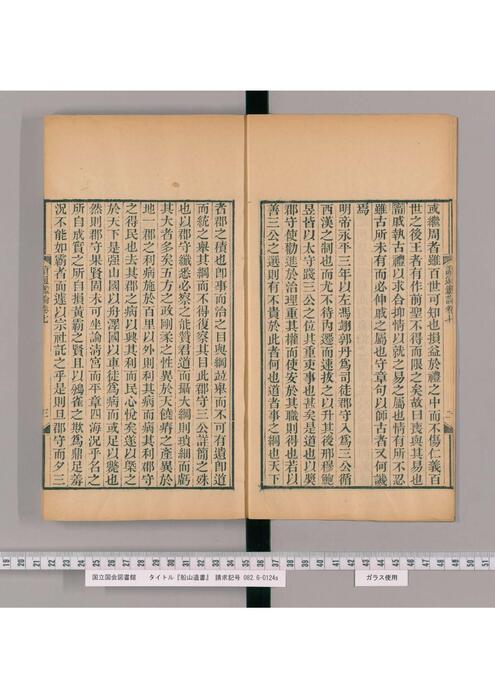 或繼周者雖百世可知也損益於禮之中而不傷仁義百
世之後王者有作前聖不得而限之矣故曰喪與其易也
寧戚執古禮以求合抑情以就之易之屬也情有所不忍
雖古所未有而必伸戚之屬也守章句以師古者又何譏
焉
明帝永平三年以左馮翊郭丹爲司徒郡守入爲三公循
西漢之制也而尤不待內遷而速拔之以升其後邢穆鮑
昱皆以太守踐三公之位其重吏事也甚矣是道也以奬
郡守使勸進於治理重其權而使安於其職則得也若以
善三公之選則有不貴於此者何也道者事之綱也天下
者郡之積也卽事而治之目與綱竝舉而不可有遺卽道
而統之舉其綱而不得復察其目此郡守三公詳簡之殊
也以郡守纖悉必察之能贊君道而攝大綱則瑣細而虧
其大者多矣五方之政剛柔之性異於天饒瘠之產異於
地一郡之利病施於百里以外則利其病而病其利郡守
之得民也去其郡之病以興其利而民心悅矣遂以槩之
於天下是強山國以舟澤國以車徒爲病而或足以斃也
然則郡守果賢固未可坐論淸宮而平章四海況乎名之
所自成實之所自損黃霸之賢且以鶡雀之欺爲鼎足羞
況不能如霸者而遽以宗社託之乎是則旦郡守而夕三
國立国会図書館 タイトル『船山遺書』 請求記号 082.6-0124s
ガラス使用
19 20 21 22 23 24 25 26 27 28 29 30 31 32 33 34 35 36 37 38 39 40 41 42 43 44 45 46 47 48 49 50 51